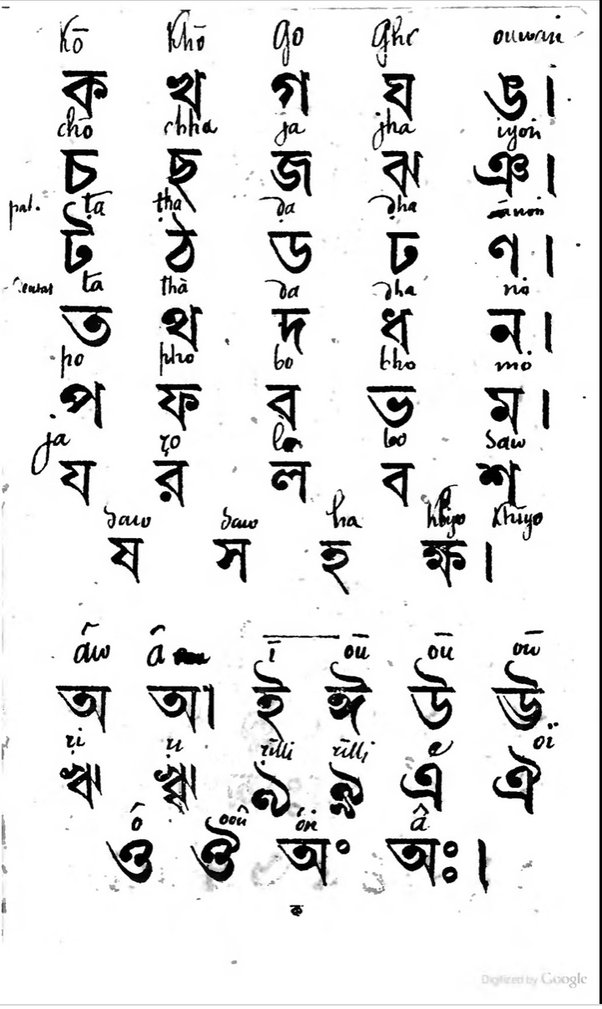 kō khō go ghe
ক খ গ ঘ ঙ।
chō chha ja jha iyoń
চ ছ জ ঝ ঞ।
pal. ṭa ṭha ḍa ḍha ānoń
ট ঠ ড ঢ ণ।
ta thā da dha no
ত থ দ ধ ন।
po pho bo bho mo
প ফ ব ভ ম।
ja ro lo bo saw
য র ল ব শ
saw saw ha khiyo khiyo
ষ স হ ক্ষ।
âw â ī oū oū
অ আ ই ঈ উ ঊ
ri ri rilli rilli e oï
ঋ ৠ ঌ ৡ এ ঐ
ô ooû ôń â
ও ঔ অং অঃ।
ক
Digitized by Google